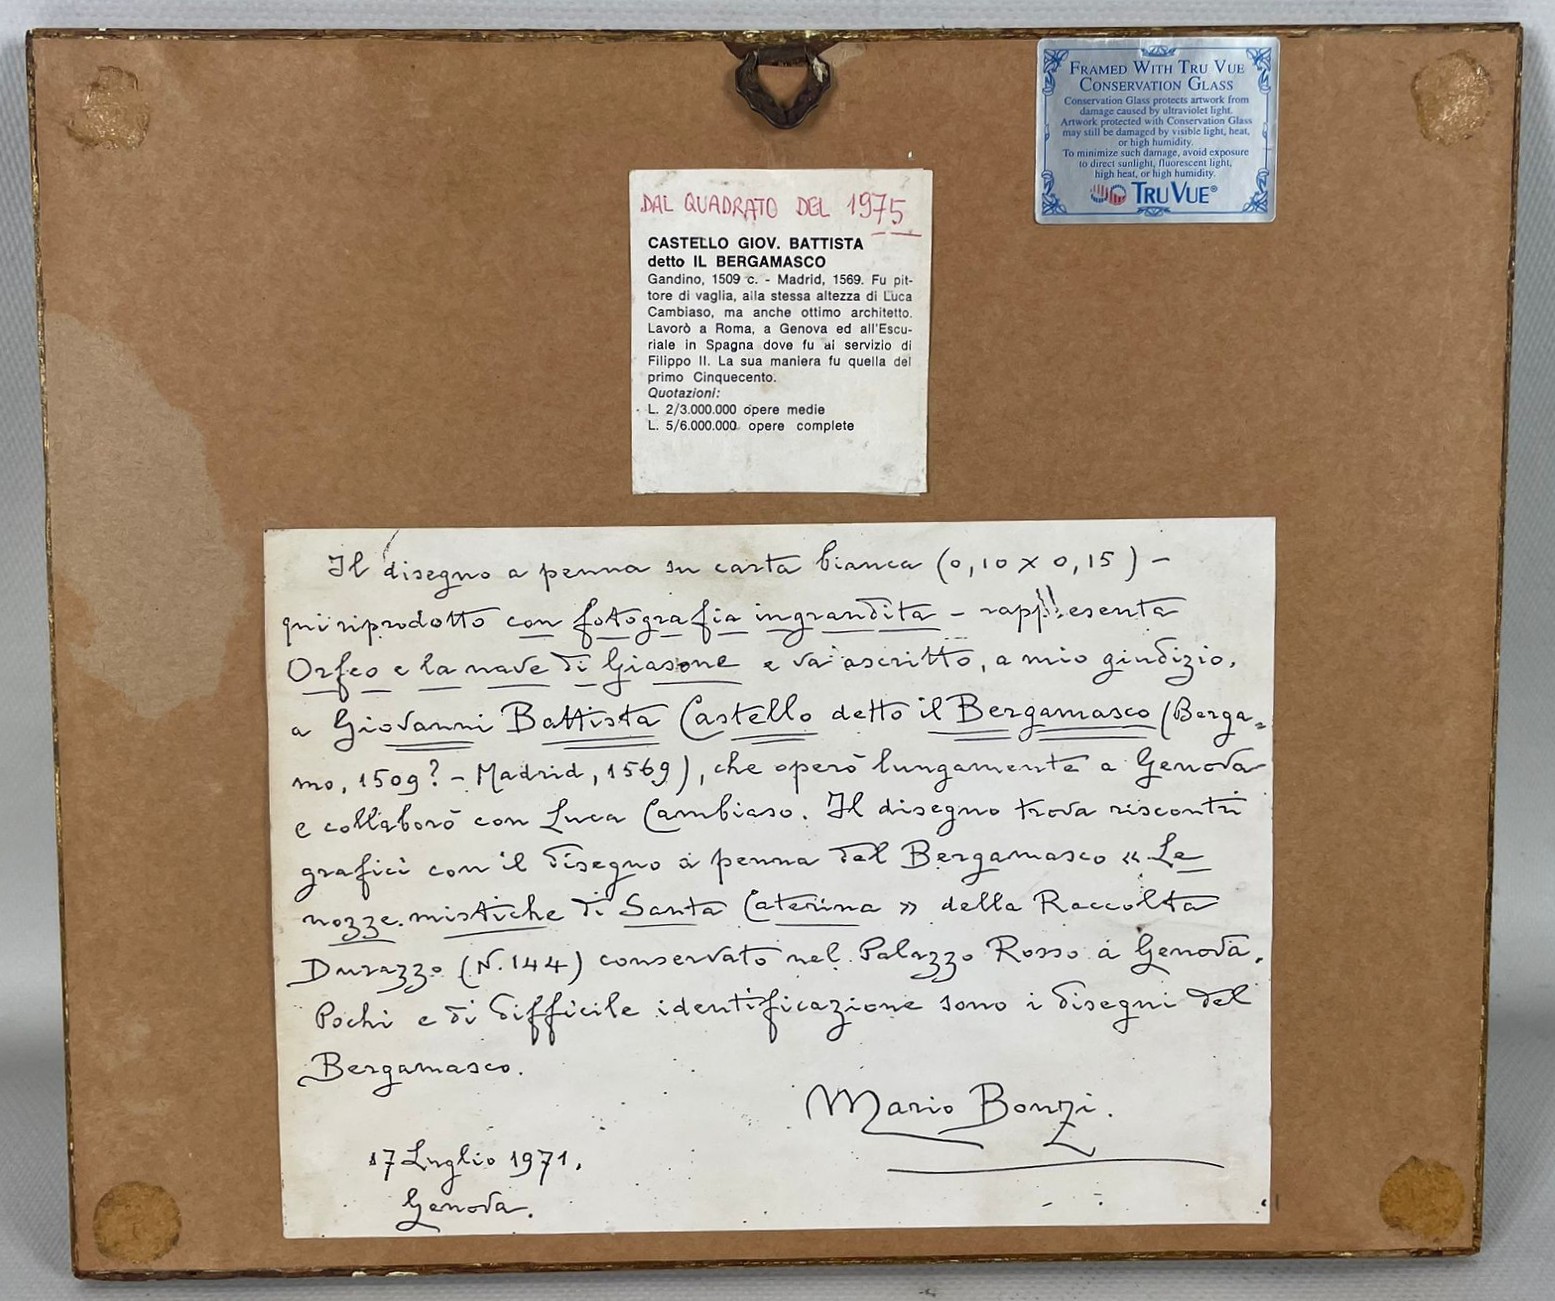 FRAMED WITH TRU VUE
CONSERVATION GLASS
Conservation Glass protects artwork from
damage caused by ultraviolet light.
Artwork protected with Conservation Glass
may still be damaged by visible light, heat,
or high humidity.
To minimize such damage, avoid exposure
to direct sunlight, fluorescent light,
high heat, or high humidity.
TRU VUE®
DAL QUADRATO DEL 1975
CASTELLO GIOV. BATTISTA
detto IL BERGAMASCO
Gandino, 1509 c. - Madrid, 1569. Fu pit-
tore di vaglia, alla stessa altezza di Luca
Cambiaso, ma anche ottimo architetto.
Lavorò a Roma, a Genova ed all'Escu-
riale in Spagna dove fu al servizio di
Filippo II. La sua maniera fu quella del
primo Cinquecento.
Quotazioni:
L. 2/3.000.000 opere medie
L. 5/6.000.000 opere complete
Il disegno a penna su carta bianca (0,10 x 0,15) -
qui riprodotto con fotografia ingrandita - rappresenta
Orfeo e la nave di Giasone e va ascritto, a mio giudizio,
a Giovanni Battista Castello detto il Bergamasco (Berga=
mo, 1509? - Madrid, 1569), che operò lungamente a Genova
e collaborò con Luca Cambiaso. Il disegno trova riscontri
grafici con il disegno a penna del Bergamasco « Le
nozze mistiche di Santa Caterina » della Raccolta
Durazzo (N. 144) conservato nel Palazzo Rosso a Genova.
Pochi e di difficile identificazione sono i disegni del
Bergamasco.
Mario Bonzi.
17 Luglio 1971.
Genova.